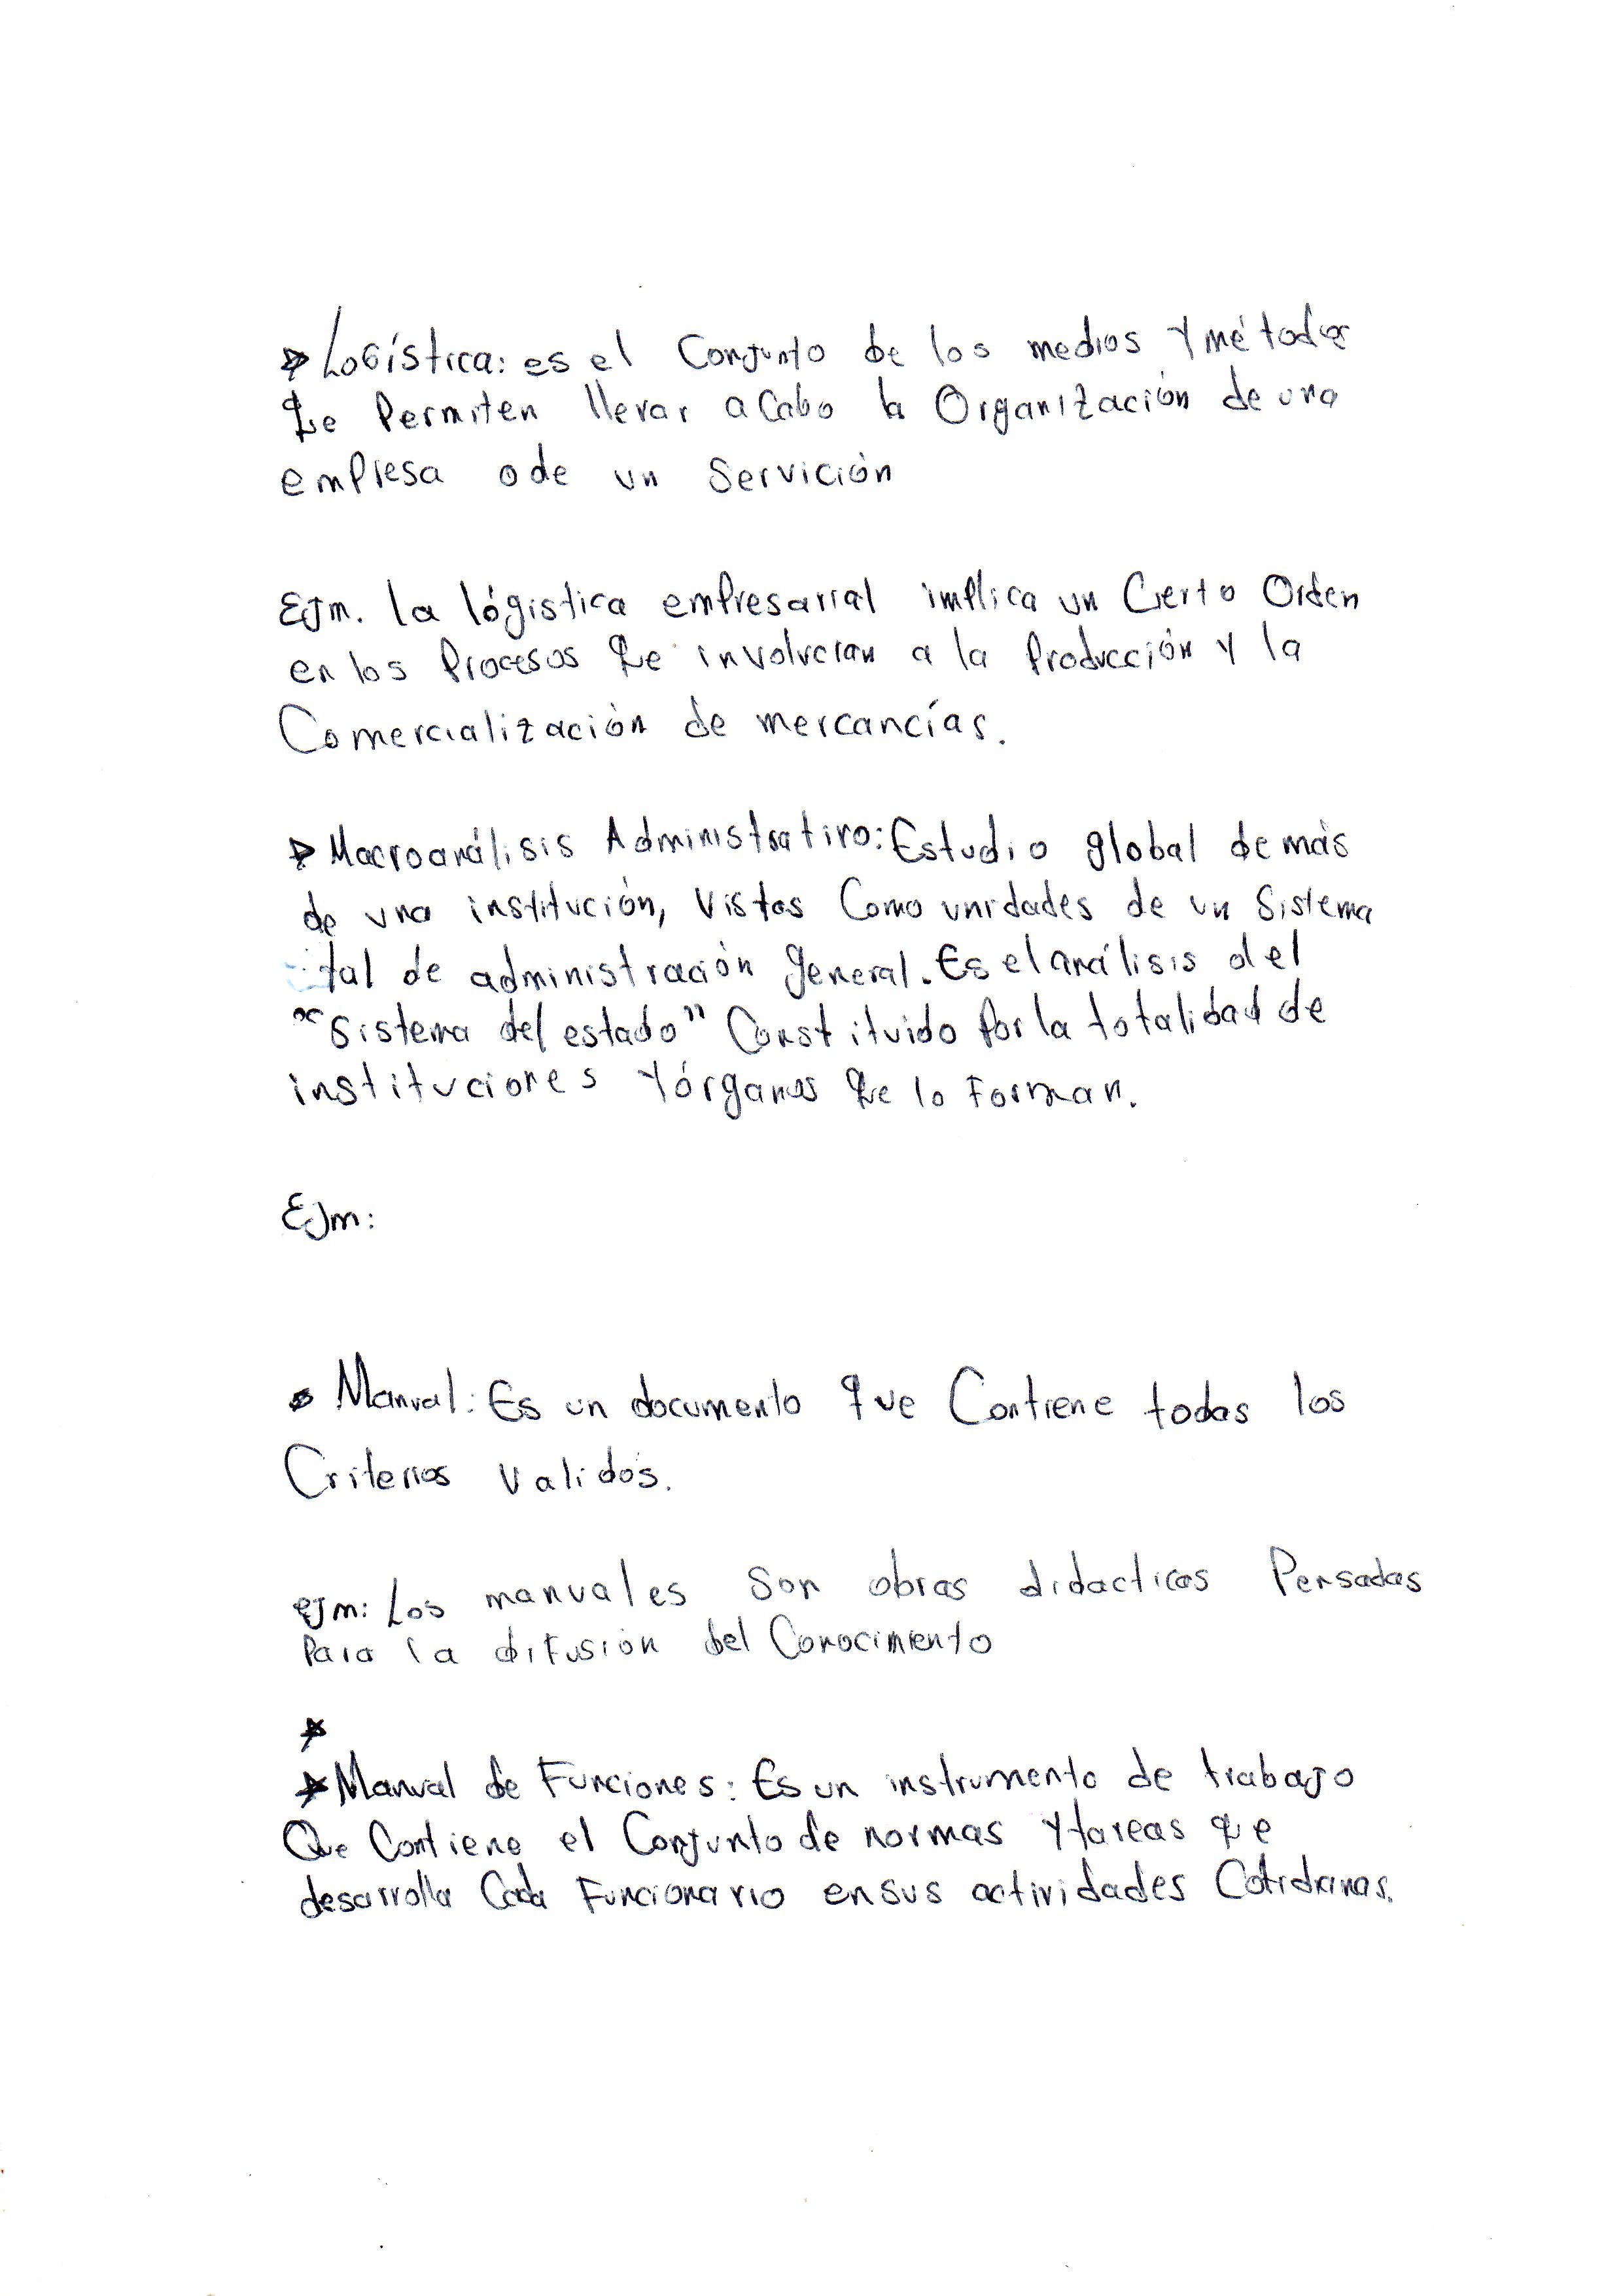 Logística: es el Conjunto de los medios y métodos
que Permiten llevar a Cabo la Organización de una
empresa o de un Servición
Ejm. la lógistica empresarial implica un Cierto Orden
en los Procesos que involucran a la Producción y la
Comercialización de mercancías.
Macroanálisis Administrativo: Estudio global de más
de una institución, Vistas Como unidades de un Sistema
tal de administración general. Es el análisis del
"Sistema del estado" Constituido Por la totalidad de
instituciones y órganos que lo Forman.
Ejm:
Manual: Es un documento que Contiene todas los
Criterios Validos.
ejm: Los manuales Son obras didacticas Pensadas
Para la difusión del Conocimiento
Manual de Funciones: Es un instrumento de trabajo
Que Contiene el Conjunto de normas y tareas que
desarrolla Cada Funcionario en sus actividades Cotidianas.